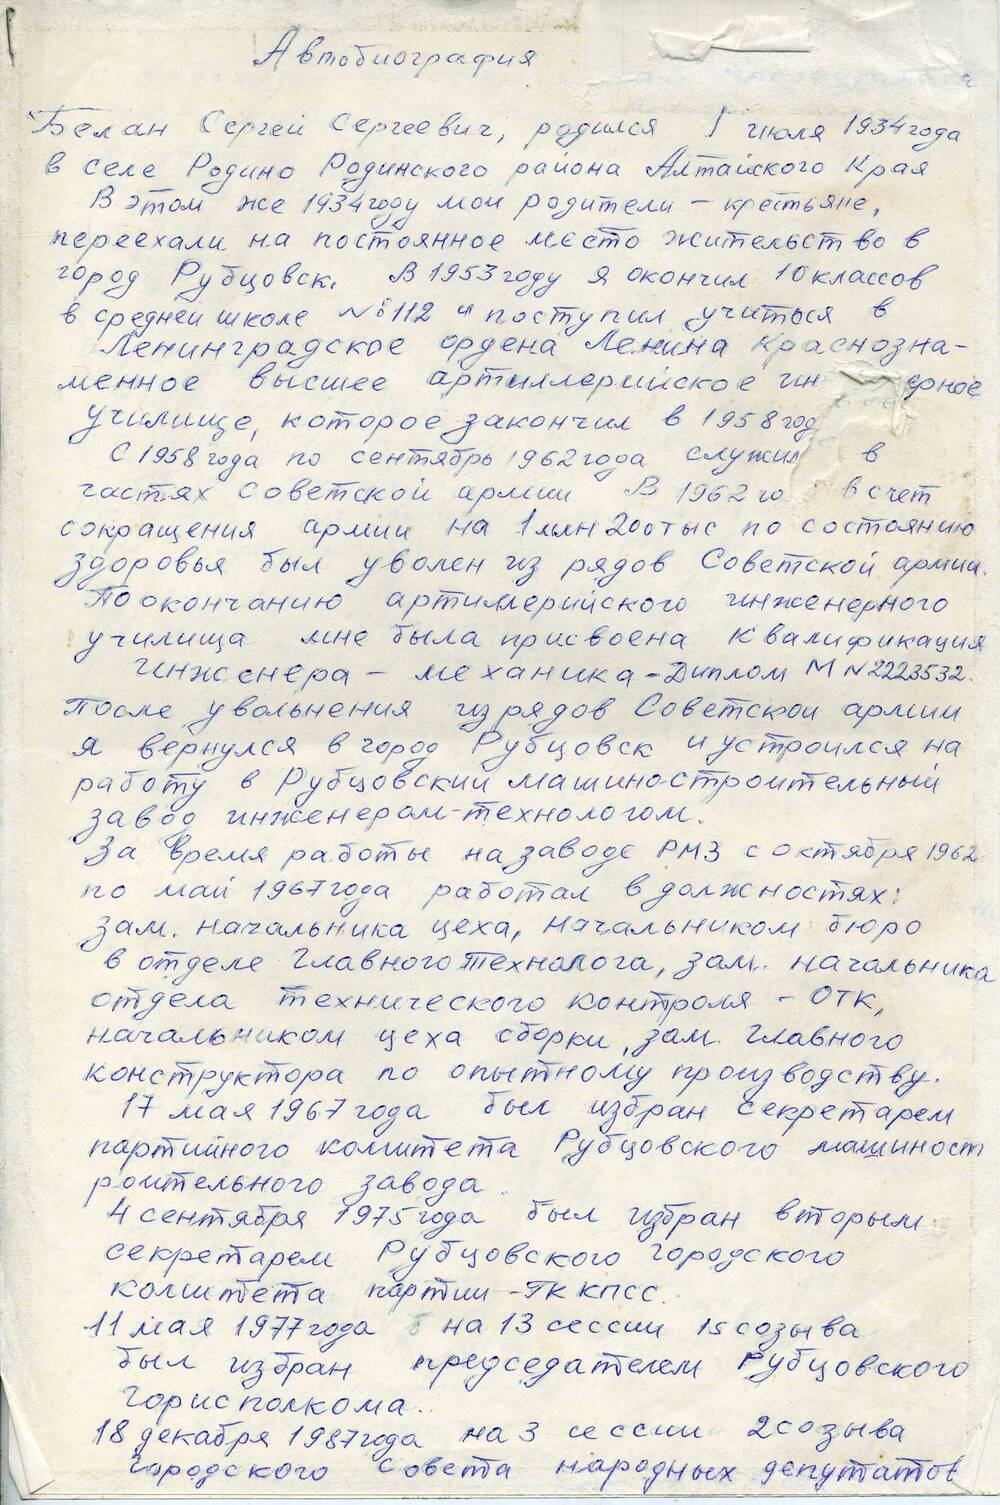 Автобиография
Белан Сергей Сергеевич, родился 1 июля 1934 года
в селе Родино Родинского района Алтайского Края
В этом же 1934 году мои родители – крестьяне,
переехали на постоянное место жительство в
город Рубцовск. В 1953 году я окончил 10 классов
в средней школе №112 и поступил учиться в
Ленинградское ордена Ленина Краснозна-
менное высшее артиллерийское ин ерное
училище, которое закончил в 1958 год
С 1958 года по сентябрь 1962 года служил в
частях Советской армии В 1962 го в счет
сокращения армии на 1 млн 200 тыс по состоянию
здоровья был уволен из рядов Советской армии.
По окончанию артиллерийского инженерного
училища мне была присвоена квалификация
инженера – механика – Диплом М №2223532.
После увольнения из рядов Советской армии
я вернулся в город Рубцовск и устроился на
работу в Рубцовский машиностроительный
завод инженером-технологом.
За время работы на заводе РМЗ с октября 1962
по май 1967 года работал в должностях:
зам. начальника цеха, начальником бюро
в отделе главного технолога, зам. начальника
отдела технического контроля – ОТК,
начальником цеха сборки, зам. главного
конструктора по опытному производству.
17 мая 1967 года был избран секретарем
партийного комитета Рубцовского машиност
роительного завода.
4 сентября 1975 года был избран вторым
секретарем Рубцовского городского
комитета партии – ГК КПСС.
11 мая 1977 года на 13 сессии 15 созыва
был избран председателем Рубцовского
горисполкома.
18 декабря 1987 года на 3 сессии 2 созыва
городского Совета народных депутатов